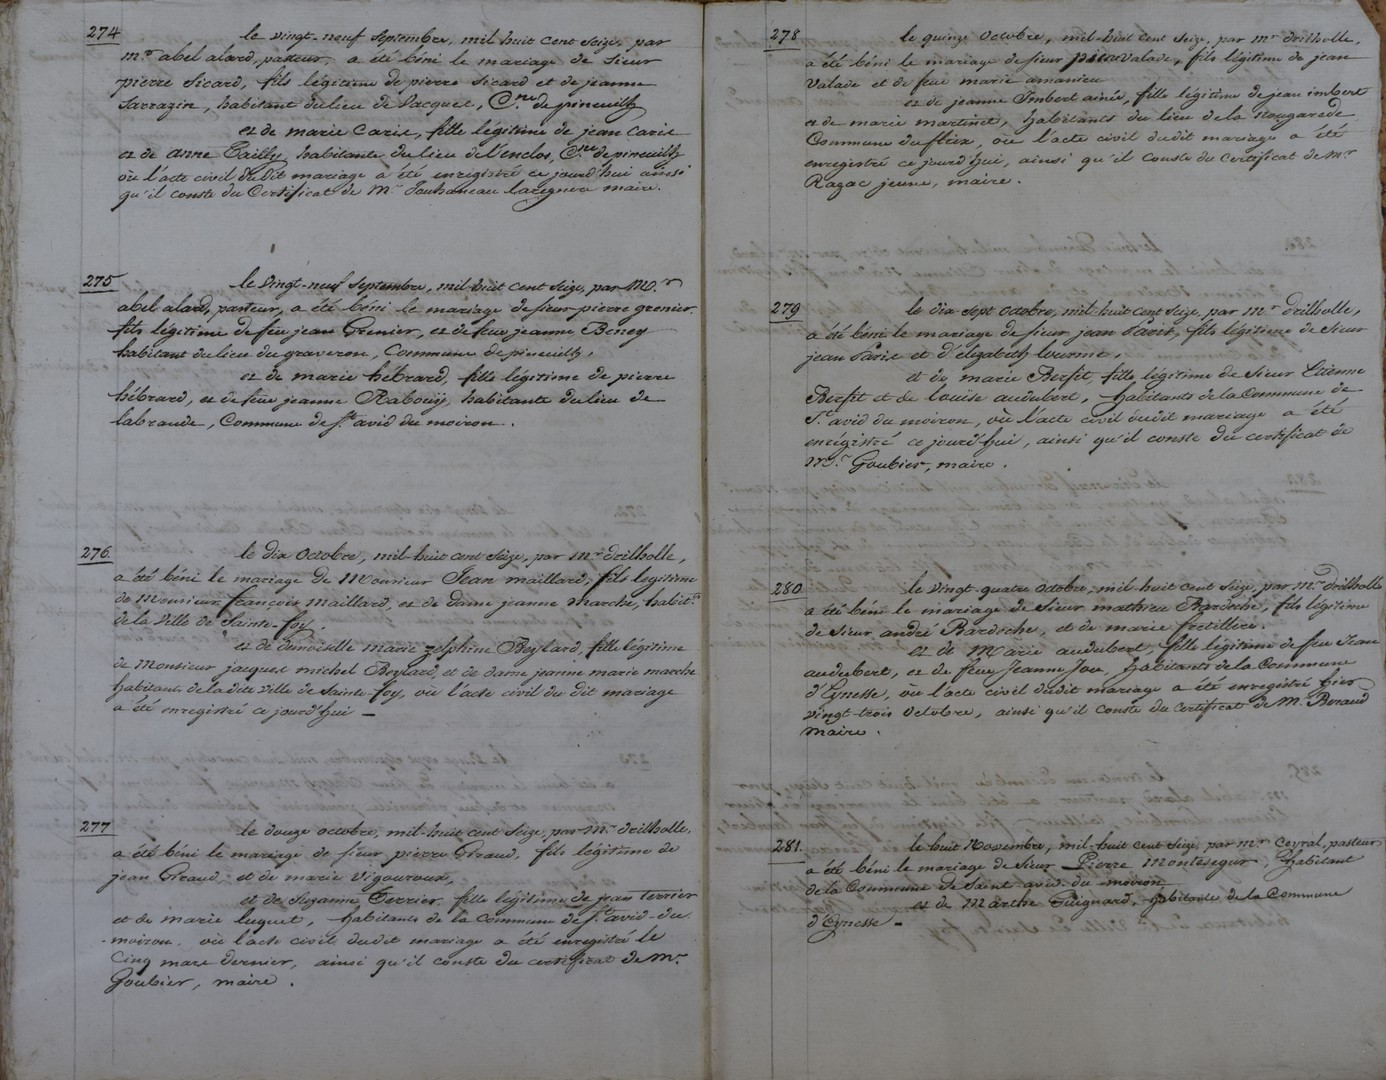 274
le vingt-neuf Septembre, mil huit cent Seize, par
mr. abel alard, pasteur, a été béni le mariage de Sieur
pierre Sicard, fils légitime de pierre Sicard et de jeanne
Sarrazin, habitant du lieu de Pacquet, Cne. de pineuilh
et de marie Caris, fille légitime de jean Caris
et de anne Tailly, habitante du lieu de l'enclos, Cne. de pineuilh
où l'acte civil dudit mariage a été enregistré ce jourd'hui ainsi
qu'il conste du Certificat de Mr. Jauhaneau lacegnere maire.
275
le vingt-neuf Septembre, mil huit cent Seize, par Mr.
abel alard, pasteur, a été béni le mariage de Sieur pierre grenier
fils légitime de feu jean Grenier, et de feu jeanne Beney
habitant du lieu du graveron, Commune de pineuilh,
et de marie hébrard, fille légitime de pierre
hébrard, et de feue jeanne Rabouÿ, habitante du lieu de
labraude, Commune de St. avid du moiron.
276
le dix Octobre, mil-huit cent Seize, par mr. drilholle,
a été béni le mariage de Monsieur Jean maillard, fils legitime
de Monsieur françois Maillard, et de dame jeanne marche, habitts.
de la Ville de Sainte-foy.
et de demoiselle marie zelphine Beylard, fille légitime
de Monsieur jacques michel Beylard, et de dame jeanne marie marche
habitants de la dite Ville de Sainte foy, où l'acte civil du dit mariage
a été enregistré ce jourd'hui —
277
le douze octobre, mil-huit cent Seize, par mr. drilholle,
a été béni le mariage de Sieur pierre Giraud, fils légitime de
jean Giraud, et de marie Vigouroux,
et de Suzanne Terrier fille légitime de jean Terrier
et de marie luquet, habitants de la Commune de St. avid-du
-moiron. où l'acte civil dudit mariage a été enregistré le
Cinq mars dernier, ainsi qu'il conste du certificat de Mr.
Goubier, maire.
278
le quinze Octobre, mil-huit cent Seize, par mr. drilholle,
a été béni le mariage de Sieur Valade, fils légitime de jean
Valade et de feu marie amanieu
et de jeanne Imbert ainée, fille légitime de jean imbert
et de marie martinet, habitants du lieu de la Nougarède
Commune du fleix, où l'acte civil dudit mariage a été
enregistré ce jourd'hui, ainsi qu'il conste du Certificat de Mr.
Ragac jeune, maire.
279
le dix-Sept Octobre, mil huit cent Seize, par mr. drilholle,
a été béni le mariage de Sieur jean Paris, fils légitime de Sieur
jean Paris et d'élizabeth
et de marie Berfit fille légitime de Sieur Etienne
Berfit et de louise audubert, habitants de la Commune de
St. avid du moiron, où l'acte civil dudit mariage a été
enrégistré ce jourd'hui, ainsi qu'il conste du certificat de
Mr. Goubier, maire.
280
le vingt-quatre Octobre, mil huit cent Seize, par Mr. drilholle
a été béni le mariage de Sieur mathieu Bardeche, fils légitime
de Sieur andré Bardeche, et de marie fretillère.
et de Marie audubert, fille légitime de feu Jean
audubert, et de feue Jeanne Jou, habitants de la Commune
d'Eynesse, où l'acte civil dudit mariage a été enregistré hier
vingt-trois Octobre, ainsi qu'il conste du certificat de Mr. Beraud
Maire.
281.
le huit Novembre, mil huit cent Seize par Mr. Ceyral, pasteur
a été béni le mariage de Sieur Pierre Montesegur, habitant
de la Commune de Saint-avid-du moiron
et de Marthe Guignard, habitante de la Commune
d'Eynesse —